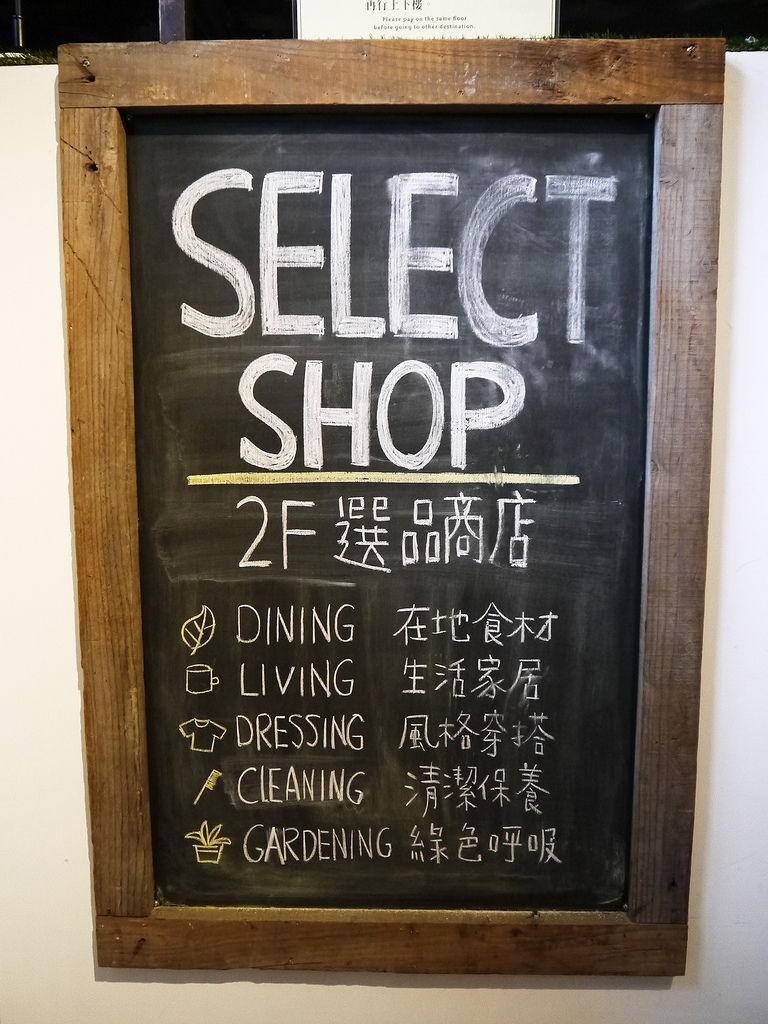 再行上下樓。
Please pay on the same floor
before going to other destination.
SELECT
SHOP
2F 選品商店
DINING 在地食材
LIVING 生活家居
DRESSING 風格穿搭
CLEANING 清潔保養
GARDENING 綠色呼吸